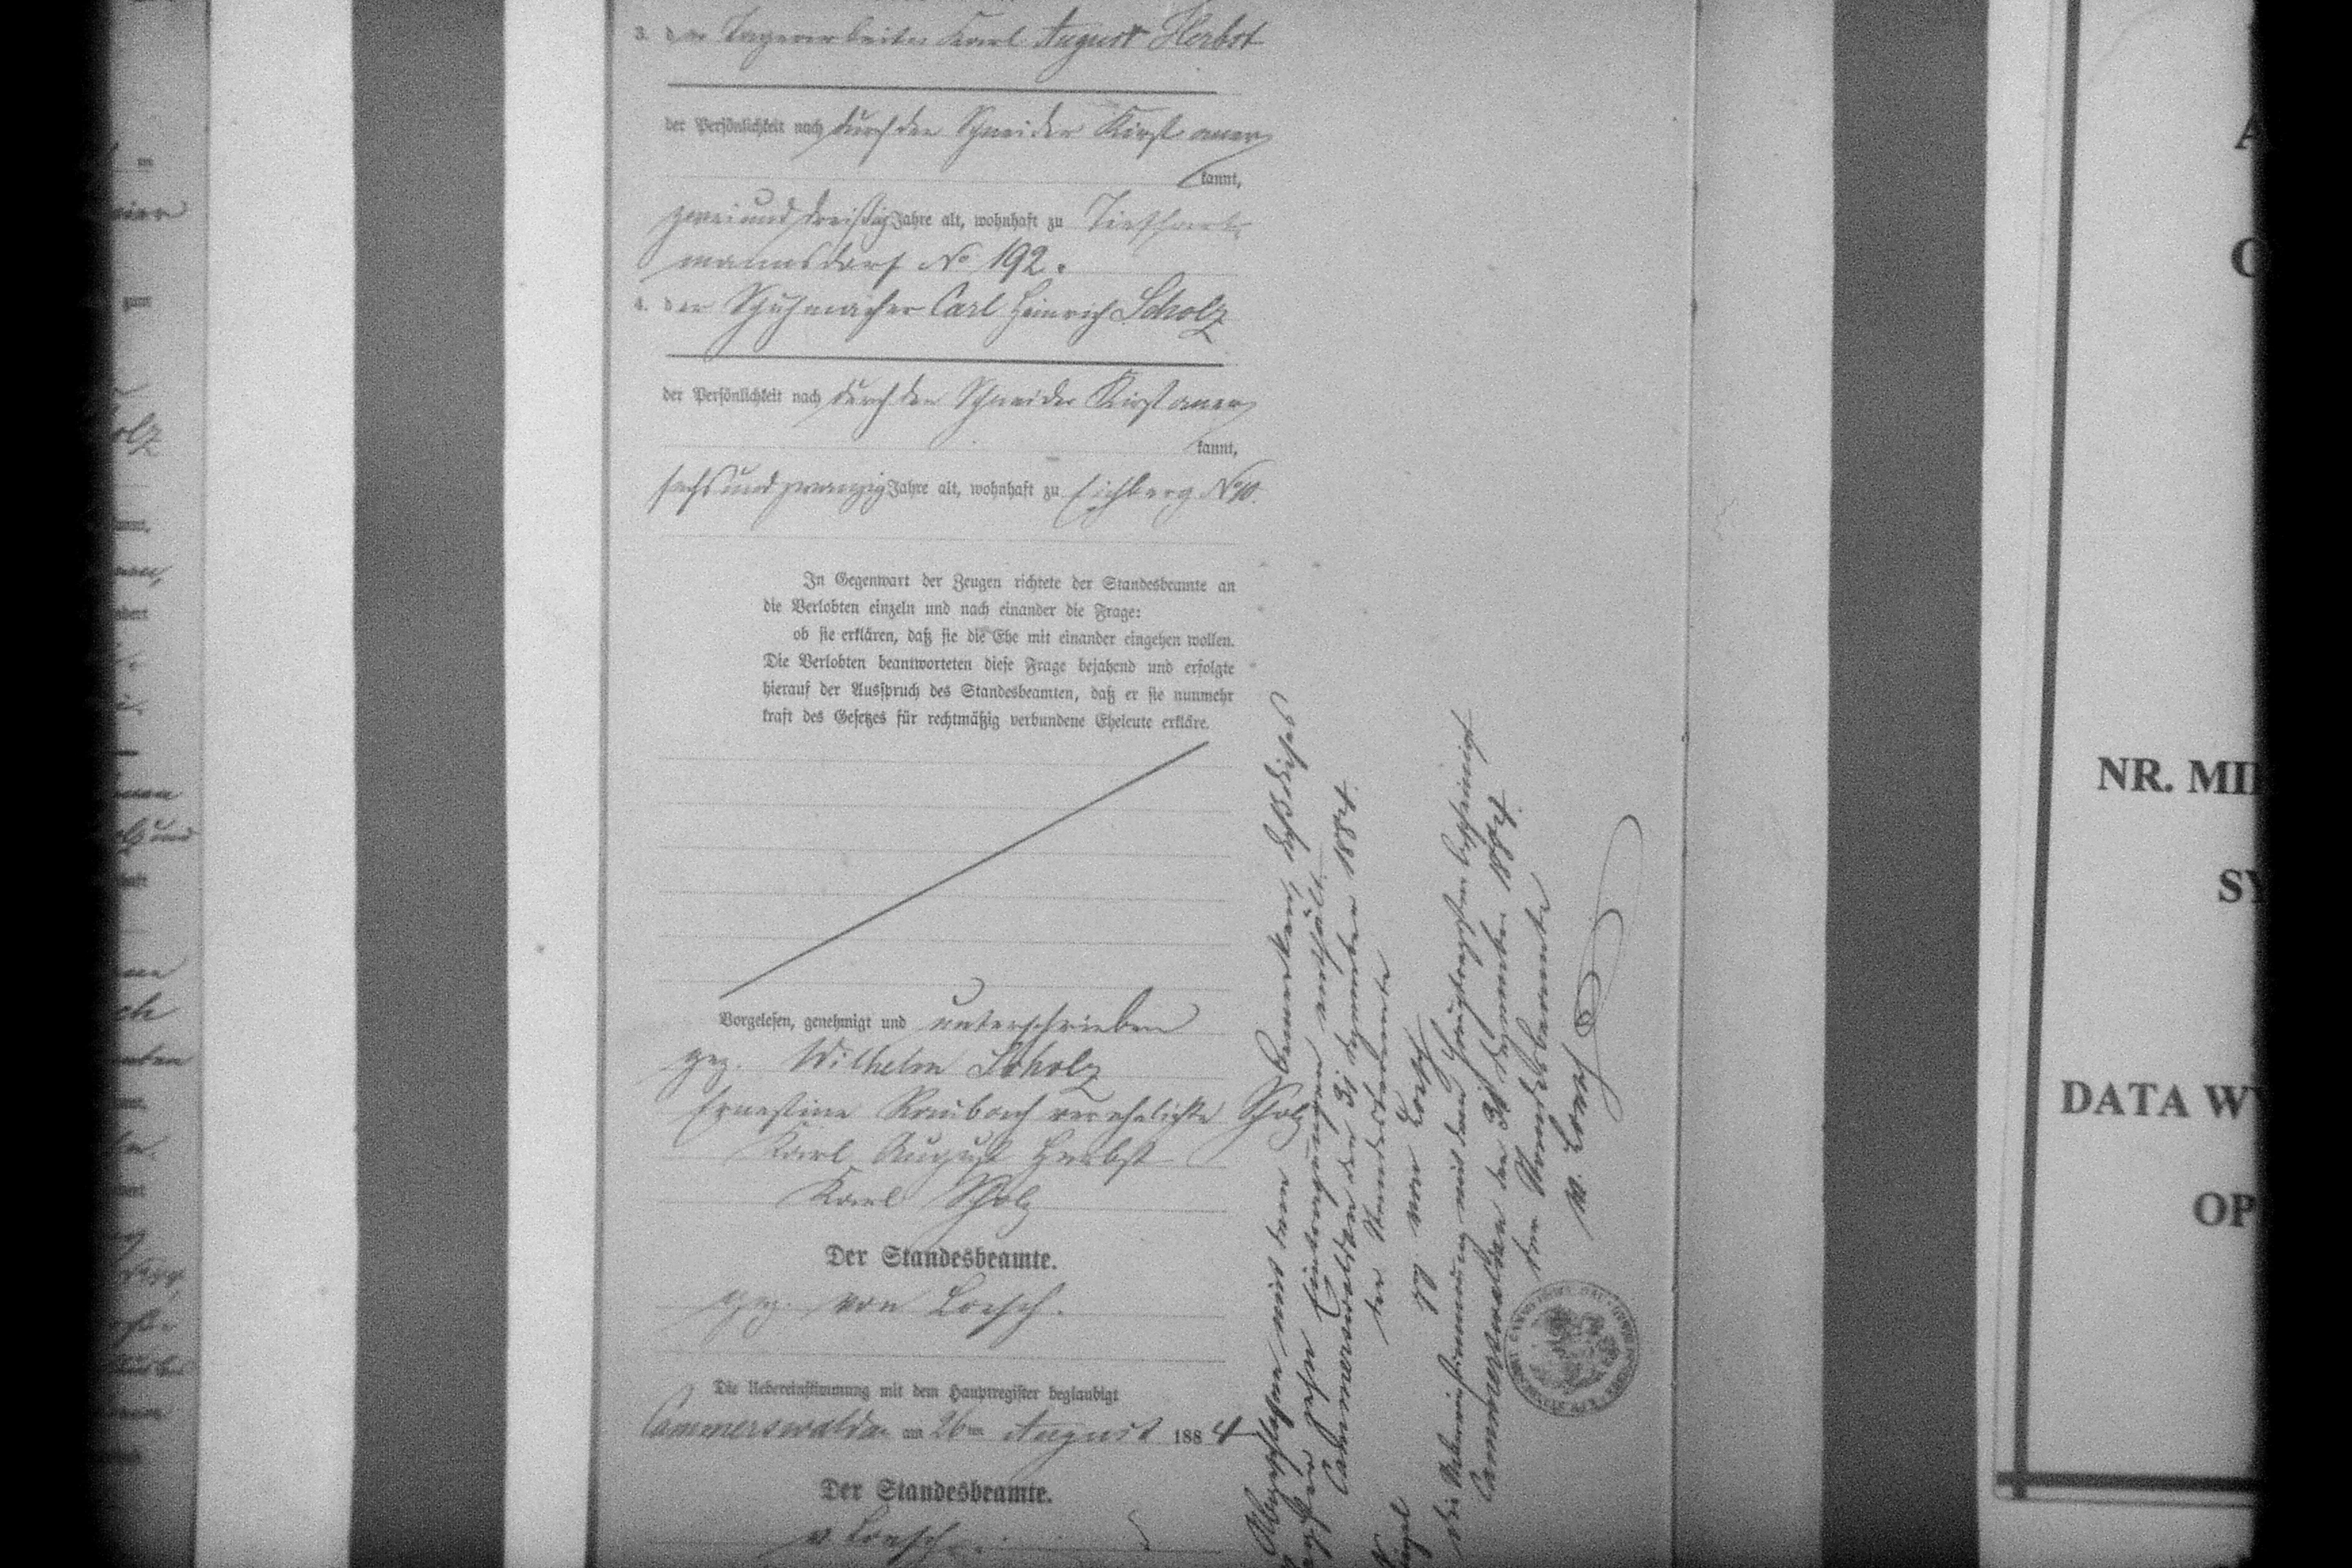 3. der Tagearbeiter Karl August Herbst
der Persönlichkeit nach durch den Schneider Kirst aner
kannt,
zwei und dreißig Jahre alt, wohnhaft zu Tiefhart-
mannsdorf No 192.
4. der Schuhmacher Carl Heinrich Scholz
der Persönlichkeit nach durch den Schneider Kirst aner
kannt,
sechs und zwanzig Jahre alt, wohnhaft zu Eichberg No 10.
In Gegenwart der Zeugen richtete der Standesbeamte an
die Verlobten einzeln und nach einander die Frage:
ob sie erklären, daß sie die Ehe mit einander eingehen wollen.
Die Verlobten beantworteten diese Frage bejahend und erfolgte
hierauf der Ausspruch des Standesbeamten, daß er sie nunmehr
kraft des Gesetzes für rechtmäßig verbundene Eheleute erkläre.
Vorgelesen, genehmigt und unterschrieben
gez. Wilhelm Scholz
Ernestine Raubach verehelichte Scholz
Karl August Herbst
Karl Scholz
Der Standesbeamte.
gez. von Loesch.
Die Uebereinstimmung mit dem Hauptregister beglaubigt
Cammerswaldau am 26ten August 1884
Der Standesbeamte.
v. Loesch.
Abgeschlossen mit dem Bemerken, daß dieses
zehn Eintragungen enthält.
Cammerswaldau den 31 Dezember 1884.
der Standesbeamte
gez. von Loesch
Die Uebereinstimmung mit dem Hauptregister bescheinigt
Cammerswaldau den 31 Dezember 1884.
der Standesbeamte
v. Loesch
NR. MI
SY
DATA W
OP